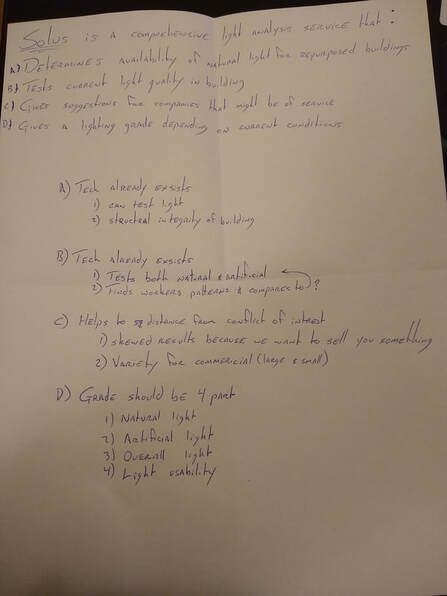 Solus is a comprehensive light analysis service that :
A) Determines availability of natural light for repurposed buildings
B) Tests current light quality in building
C) Gives suggestions for companies that might be of service
D) Gives a lighting grade depending on current conditions
A) Tech already exsists
1) can test light
2) structral integrity of building
B) Tech already exsists
1) Tests both natural & artificial
2) Finds workers patterns & compares to ?
C) Helps to distance from conflict of interest
1) skewed results because we want to sell you something
2) Variety for commericial (large & small)
D) Grade should be 4 part
1) Natural light
2) Artificial light
3) Overall light
4) Light usability